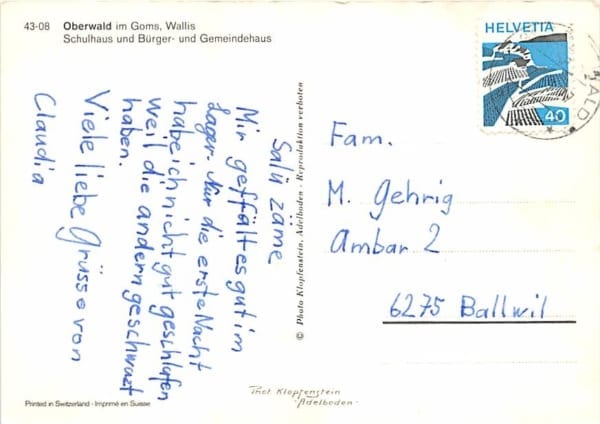 43-08 Oberwald im Goms, Wallis
Schulhaus und Bürger- und Gemeindehaus
Salü zäme
Mir geffält es gut im
Lager. Nur die erste Nacht
habe ich nicht gut geschlafen
weil die andern geschwazt
haben.
Viele liebe Grüsse von
Claudia
© Photo Klopfenstein, Adelboden - Reproduktion verboten
HELVETIA
40
WALD
Fam.
M. Gehrig
Ambar 2
6275 Ballwil
Phot Klopfenstein
- Adelboden -
Printed in Switzerland - Imprimé en Suisse